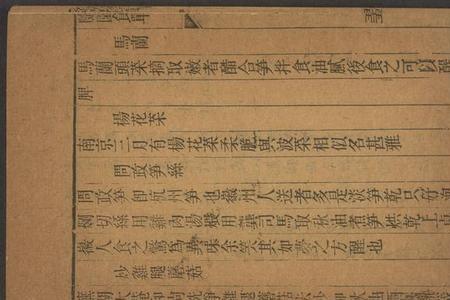 馬蘭
馬蘭頭菜摘取嫩者醋合笋拌食油膩後食之可以醒
脾
楊花菜
南京三月有楊花菜柔脆與波菜相似名甚雅
問政笋絲
問政笋即杭州笋也徽州人送者多是淡笋乾只好泡
爛切絲用雞肉湯煨用龔司馬取秋油煮笋烘乾上桌
徽人食之驚為異味余笑其如夢之方醒也
炒雞腿蘑菇